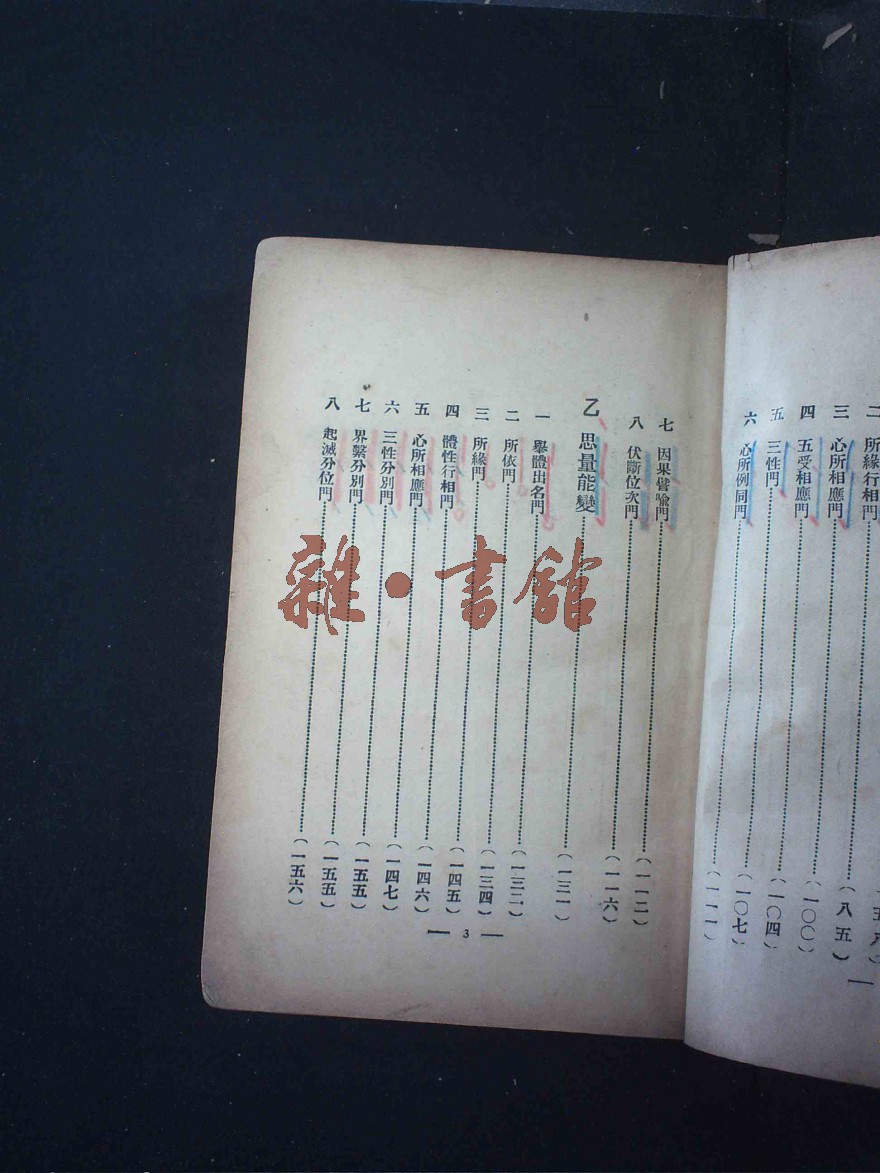 二 所緣行相門
三 心所相應門(八五)
四 五受相應門(一〇〇)
五 三性門(一〇四)
六 心所例同門(一〇七)
(一一一)
七 因果譬喩門(一一二)
八 伏斷位次門(一一六)
乙 思量能變(一三一)
一 舉體出名門(一三二)
二 所依門(一三四)
三 所緣門(一四五)
四 體性行相門(一四六)
五 心所相應門(一四七)
六 三性分別門(一五五)
七 界繫分別門(一五五)
八 起滅分位門(一五六)
3
雜·書館